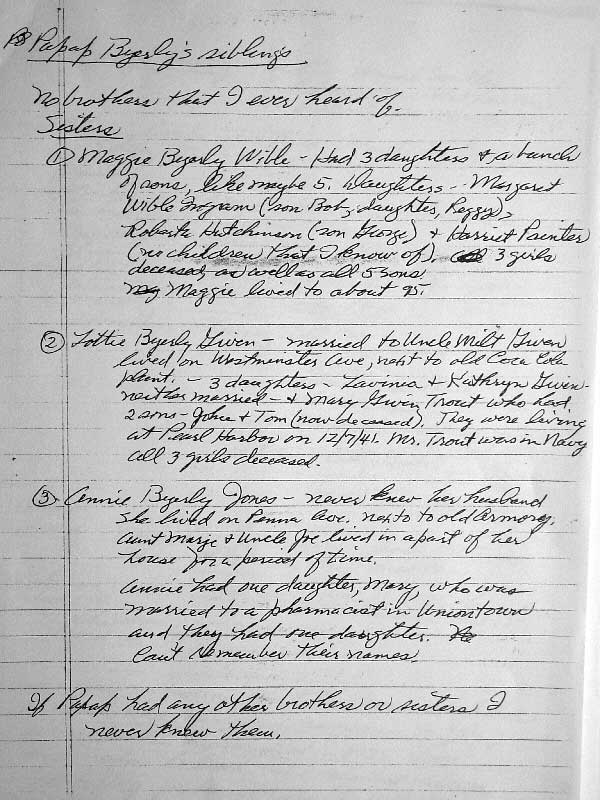 Papap Byerly's siblings
No brothers that I ever heard of.
Sisters
① Maggie Byerly Wible - Had 3 daughters & a bunch
of sons, like maybe 5. Daughters - Margaret
Wible Ingram (son Bob, daughter, Peggy),
Roberta Hutchinson (son George) & Harriet Painter
(no children that I know of). 3 girls
deceased, as well as all 5 sons.
Maggie lived to about 95.
② Lottie Byerly Given - married to Uncle Milt Given
lived on Westminster Ave, next to old Coca Cola
plant. - 3 daughters - Lavinia & Kathryn Given -
neither married - & Mary Given Trout who had
2 sons - John & Tom (now deceased). They were living
at Pearl Harbor on 12/7/41. Mr. Trout was in Navy
all 3 girls deceased.
③ Annie Byerly Jones - never knew her husband
She lived on Penna Ave. next to old Armory.
Aunt Marge & Uncle Joe lived in a part of her
house for a period of time.
Annie had one daughter, Mary, who was
married to a pharmacist in Uniontown
and they had one daughter.
Can't remember their names.
If Papap had any other brothers or sisters I
never knew them.